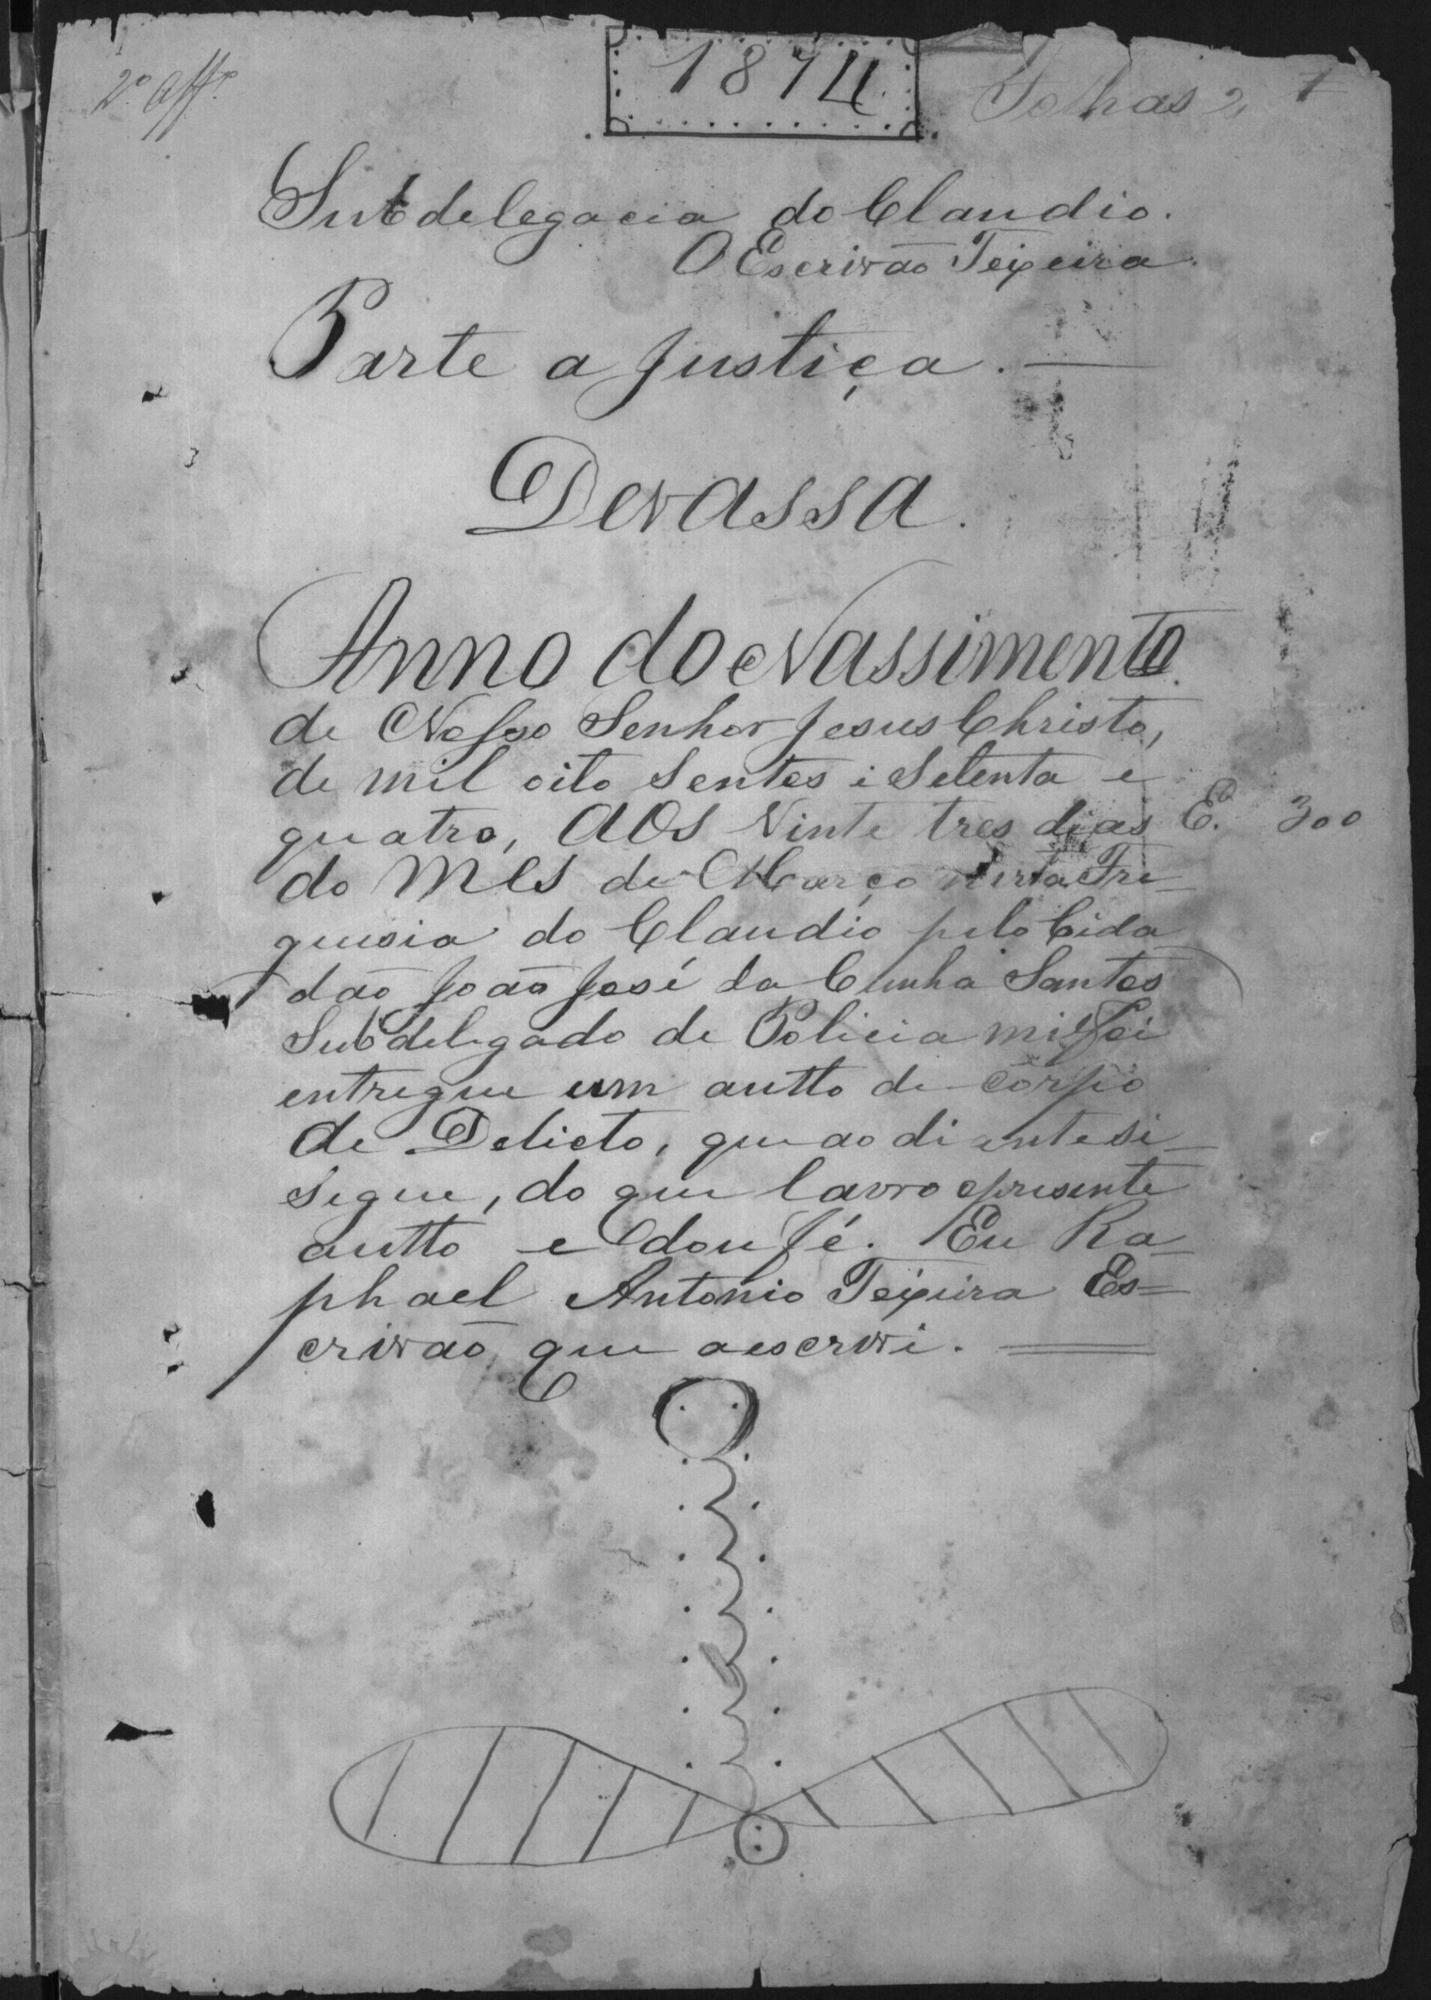 2º Aff.º
1874
Folhas 2, 1
Subdelegacia do Claudio.
O Escrivão Teixeira.
Parte a Justiça.
Devassa.
Anno do Nassimento
de Nosso Senhor Jesus Christo,
de mil oito sentos i Setenta e
quatro, AOS Vinte tres dias
E. 300
do MES de Março nesta Fre-
guisia do Claudio pelo Cida
dão João José da Cunha Santos
Subdelegado de Policia mi foi
entregue um autto de corpo
de Delicto, que ao di ante si-
segue, do que lavro opresente
autto e dou fé. Eu Ra-
phael Antonio Teixeira Es=
crivão que aescrivi.